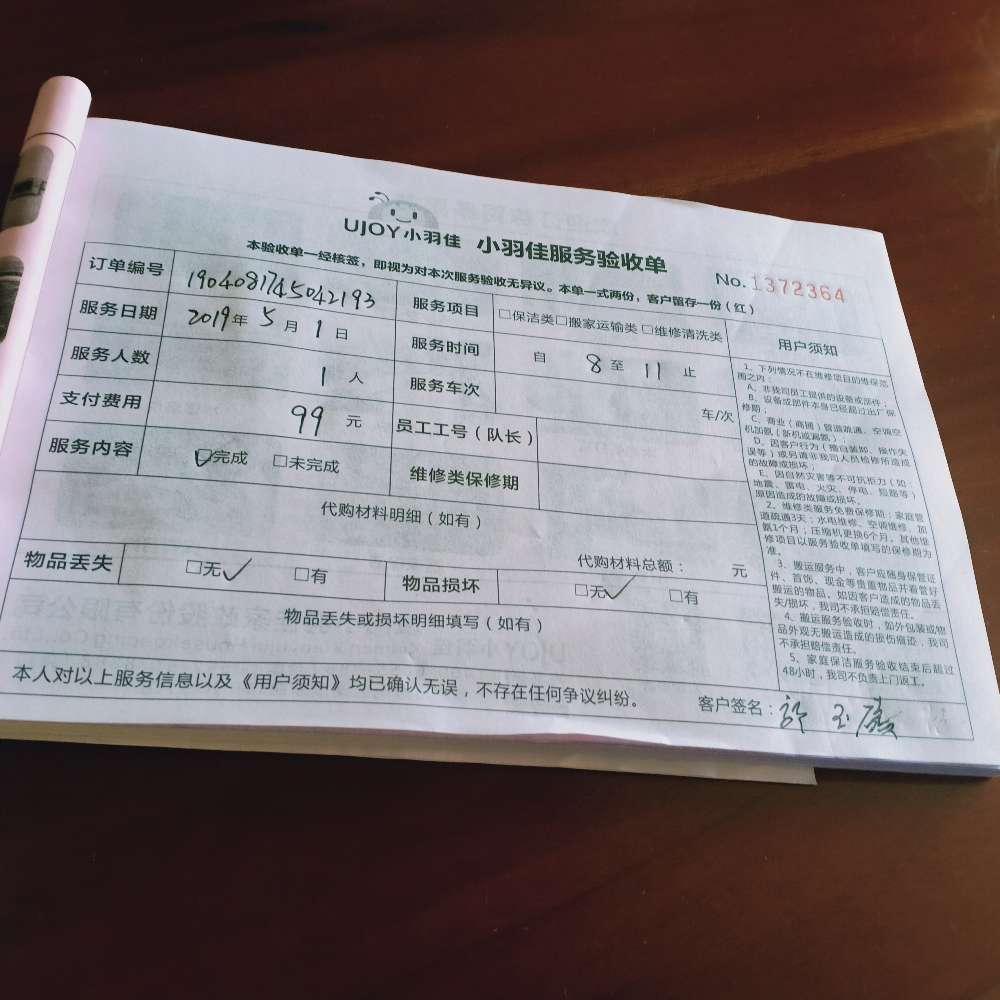 UJOY小羽佳 小羽佳服务验收单
No.1372364
本验收单一经核签，即视为对本次服务验收无异议。本单一式两份，客户留存一份（红）
订单编号 1904081745042193 服务项目 □保洁类□搬家运输类 □维修清洗类
服务日期 2019年 5月 1日 服务时间 自 8 至 11 止
服务人数 1 人 服务车次 车/次
支付费用 99 元 员工工号（队长）
服务内容 ☑完成 □未完成 维修类保修期
代购材料明细（如有）
代购材料总额： 元
物品丢失 □无✓ □有 物品损坏 □无✓ □有
物品丢失或损坏明细填写（如有）
本人对以上服务信息以及《用户须知》均已确认无误，不存在任何争议纠纷。
客户签名：
用户须知
1、下列情况不在维修项目的维保范
围之内：
A、非我司员工提供的设备或部件；
B、设备或部件本身已经超过出厂保
修期；
C、商业（商铺）管道疏通、空调空
机加氨（新机或漏氨）；
D、因客户行为（擅自装卸、操作失
误等）或另请非我司人员检修所造成
的故障或损坏；
E、因自然灾害等不可抗拒力（如：
地震、雷电、火灾、停电、短路等）
原因造成的故障或损坏。
2、维修类服务免费保修期：家庭管
道疏通3天；水电维修、空调维修、加
氨1个月；压缩机更换6个月。其他维
修项目以服务验收单填写的保修期为
准。
3、搬运服务中，客户应随身保管证
件、首饰、现金等贵重物品并看管好
搬运的物品，如因客户造成的物品丢
失/损坏，我司不承担赔偿责任。
4、搬运服务验收时，如外包装或物
品外观无搬运造成的损伤痕迹，我司
不承担赔偿责任。
5、家庭保洁服务验收结束后超过
48小时，我司不负责上门返工。